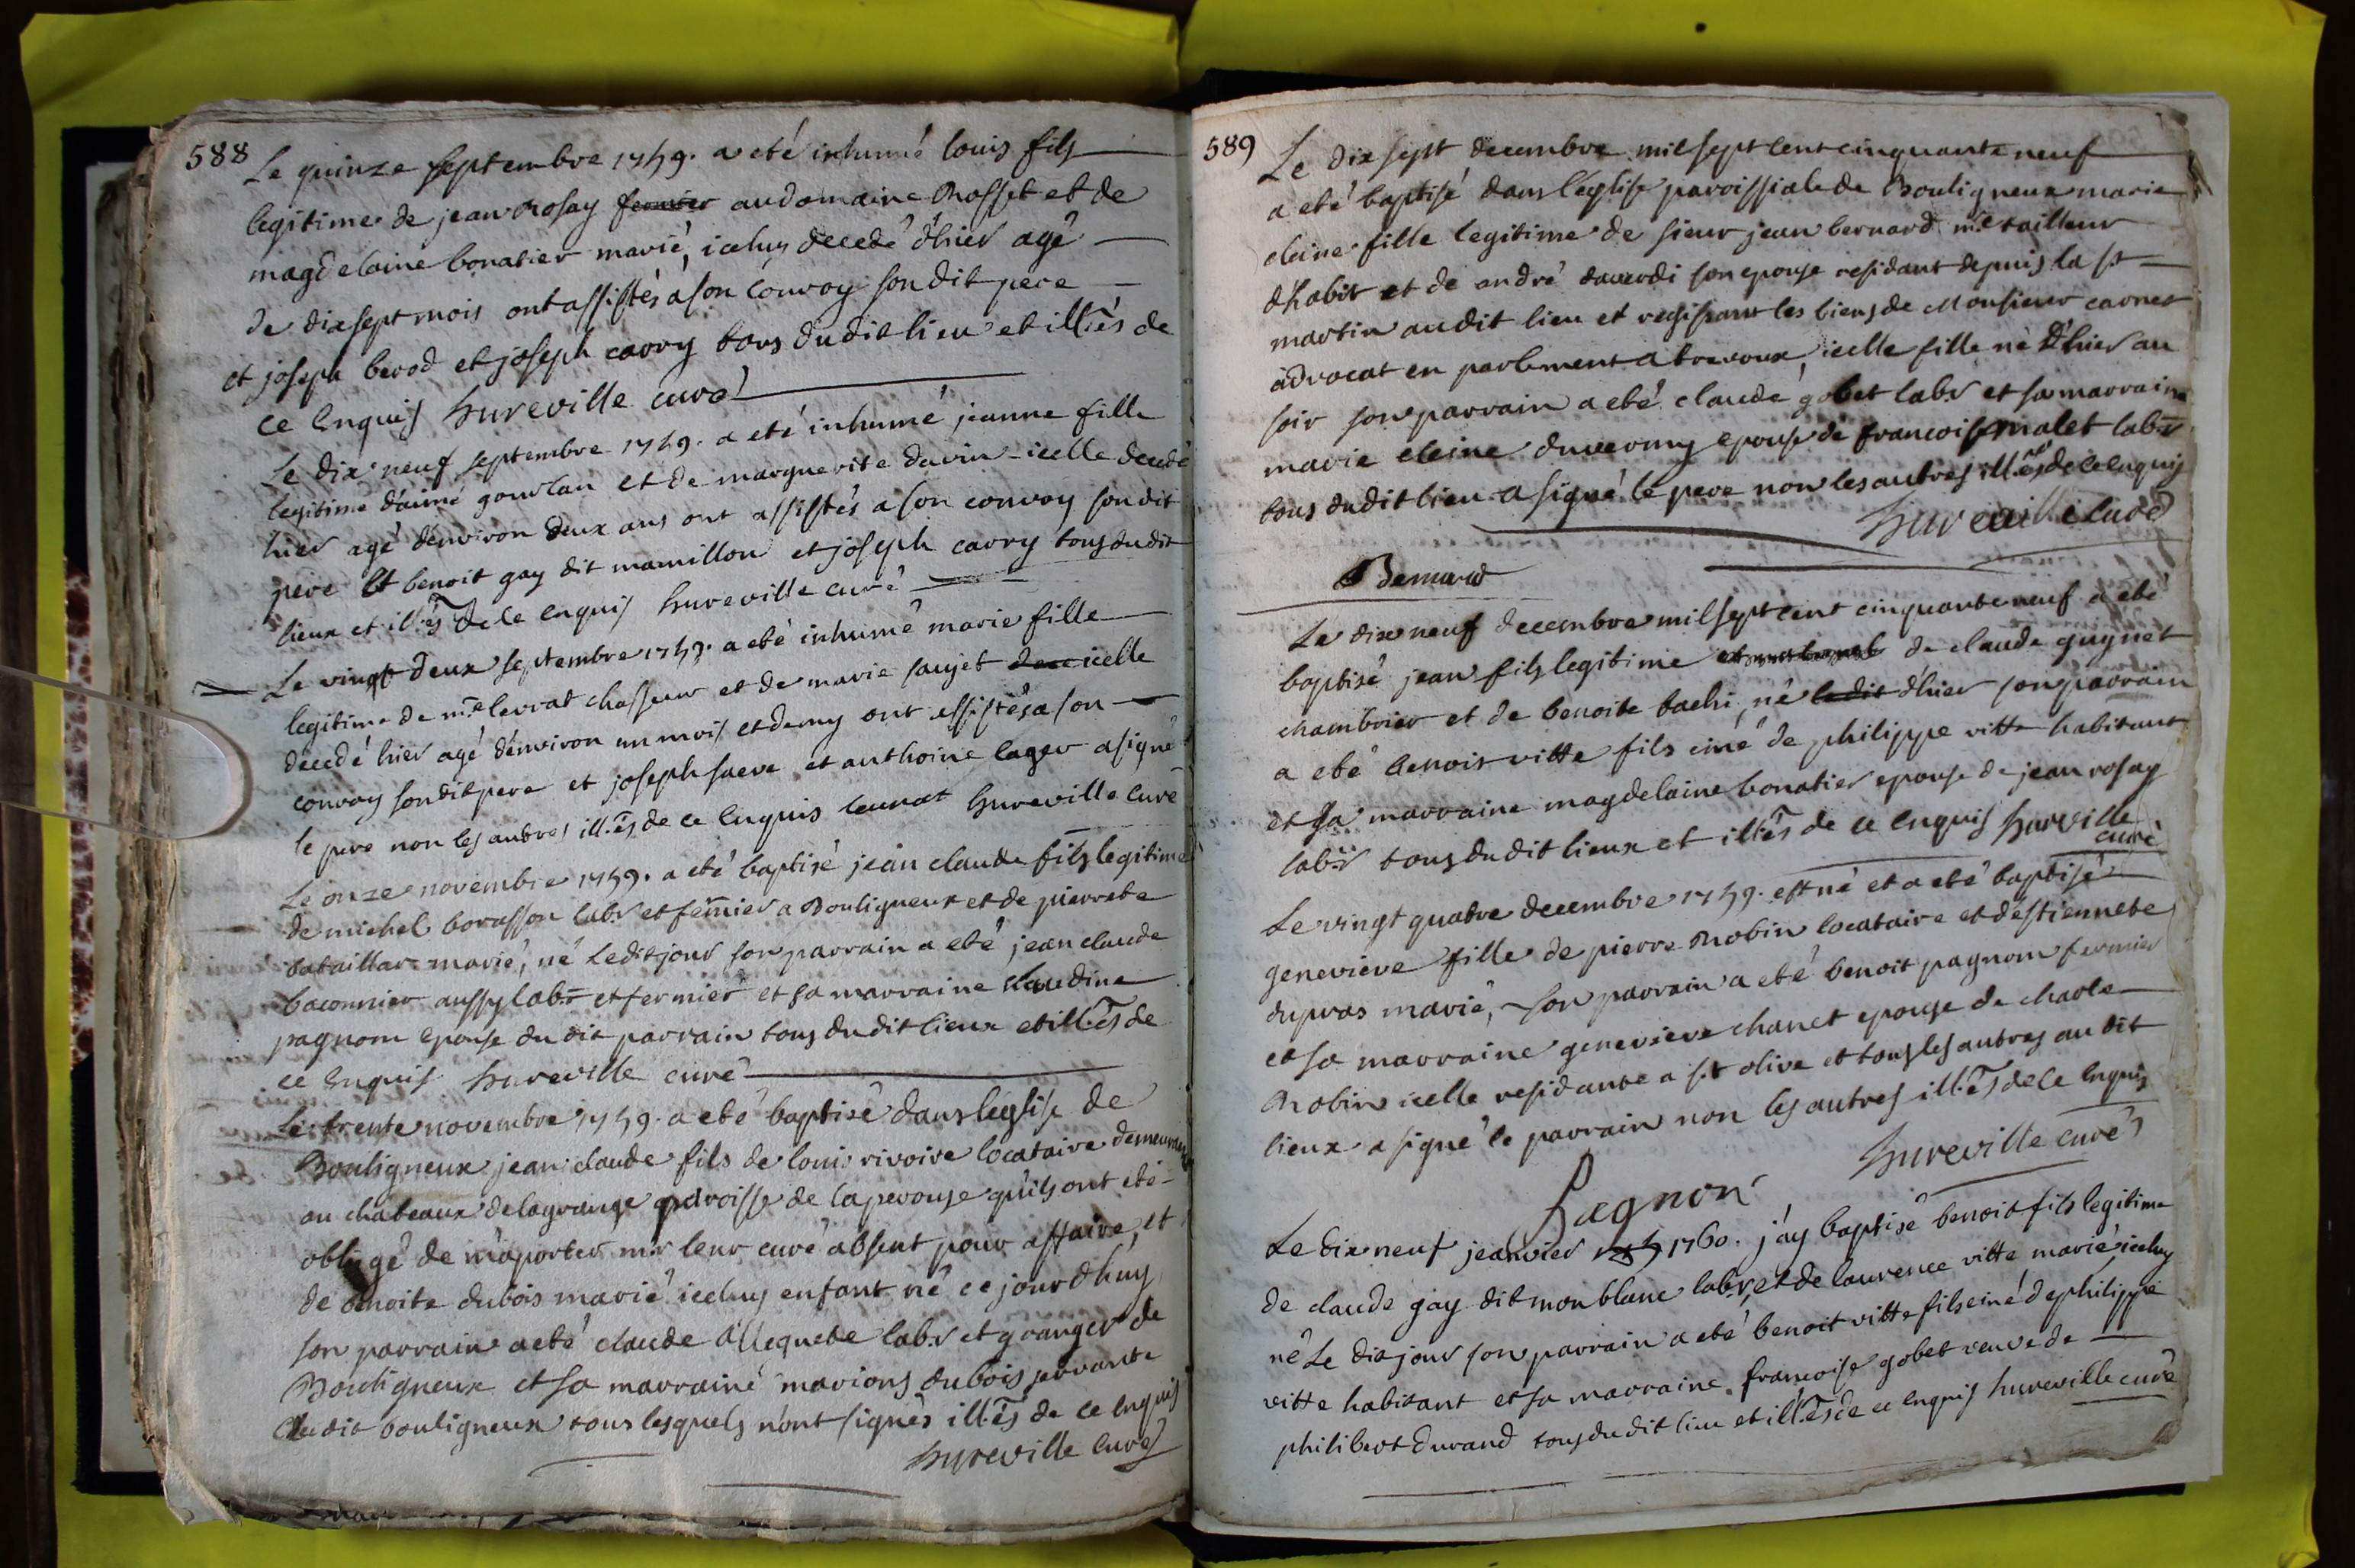 588
Le quinze septembre 1759. a eté inhumé louis fils
legitime de jean Rosay fermier au domaine Rosset et de
magdelaine bonatier marié, iceluy decedé d'hier agé
de dix sept mois ont assistés a son convoy son dit pere
et joseph berod et joseph carry tous du dit lieu et illiés de
ce Enquis hureville curé
Le dix neuf septembre 1759. a eté inhumé jeanne fille
legitime d'aimé gourlan et de marguerite davin icelle decedé
hier agé d'environ deux ans ont assistés a son convoy son dit
pere Et benoit gay dit mamillon et joseph carry tous du dit
lieux et illés de ce enquis hureville curé
Le vingt deux septembre 1759. a eté inhumé marie fille
legitime de me levrat chasseur et de marie saujet icelle
decedé hier agé d'environ un mois et demy ont assistés a son
convoy son dit pere et joseph saeve et anthoine lager a signé
le pere non les autres illés de ce Enquis leurat hureville curé
Le onze novembre 1759. a eté baptisé jean claude fils legitime
de michel borasson labr et fermier a Bouligneux et de pierrete
bataillar marié, né Ledit jour son parrain a eté jean claude
baconnier aussy labr et fermier et sa marraine claudine
pagnom epouse du dit parrain tous du dit lieux et illés de
ce Enquis hureville curé
Le trente novembre 1759. a eté baptisé dans leglise de
Bouligneux jean claude fils de louis rivoire locataire demeurant
au chateaux delagrange paroisse de laperouse quils ont eté
obligé de m'aporter mr leur curé absent pour affaire, et
de benoite dubois marié iceluy enfant né ce jourdhuy
son parrain a eté claude Allequete labr et granger de
Bouligneux et sa marraine marions dubois servante
du dit bouligneux tous lesquels n'ont signés illés de ce Enquis
hureville Curé
589
Le dix sept decembre mil sept cent cinquante neuf
a eté baptisé dans l'eglise paroissiale de Bouligneux marie
cleine fille legitime de sieur jean bernard me tailleur
d'habit et de andré daverdi son epouse residant depuis la st
martin audit lieu et regissant les biens de Monsieur carnet
advocat en parlement a trevoux, icelle fille né D'hier au
soir son parrain a eté claude gobet labr et sa marraine
marie cleine duverny epouse de francois malet labr
tous du dit lieu a signé le pere non les autres illés de ce enquis
hureville Curé
Bernard
Le dix neuf decembre mil sept cent cinquante neuf a eté
baptisé jean fils legitime de claude guynet
chambrier et de benoite bachi, né le dit d'hier son parrain
a eté benoit vitte fils einé de philippe vitte habitant
et sa marraine magdelaine bonatier epouse de jean rosay
labr tous du dit lieux et illés de ce Enquis hureville
curé
Le vingt quatre decembre 1759. est né et a eté baptisé
genevieve fille de pierre Robin locataire et d'estiennete
dupras marié, son parrain a eté benoit pagnom fermier
et sa marraine genevieve chanet epouse de charle
Robin icelle residante a st olive et tous les autres au dit
lieux a signé le parrain non les autres illés de ce Enquis
hureville curé
Pagnon
Le dix neuf jeanvier 1760. j'ay baptisé benoit fils legitime
de claude gay dit monblanc labr, et de laurence vitte marié, iceluy
né Le dit jour son parrain a eté benoit vitte fils einé de philippe
vitte habitant et sa marraine francoise gobet veuve de
philibert durand tous du dit lieu et illés de ce Enquis hureville curé